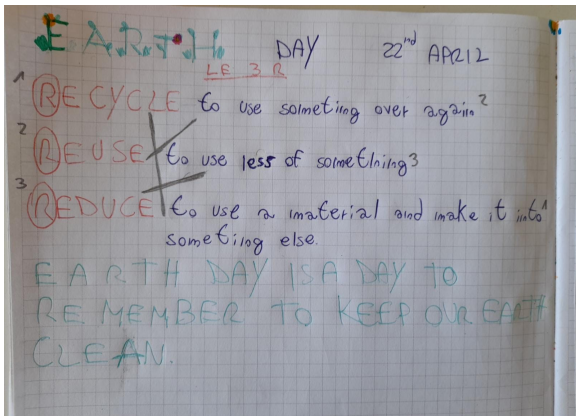 EARTH DAY 22nd APRIL
LE 3 R
1 RECYCLE to use someting over again 2
2 REUSE to use less of something 3
3 REDUCE to use a material and make it into 1
someting else.
EARTH DAY IS A DAY TO
REMEMBER TO KEEP OUR EARTH
CLEAN.